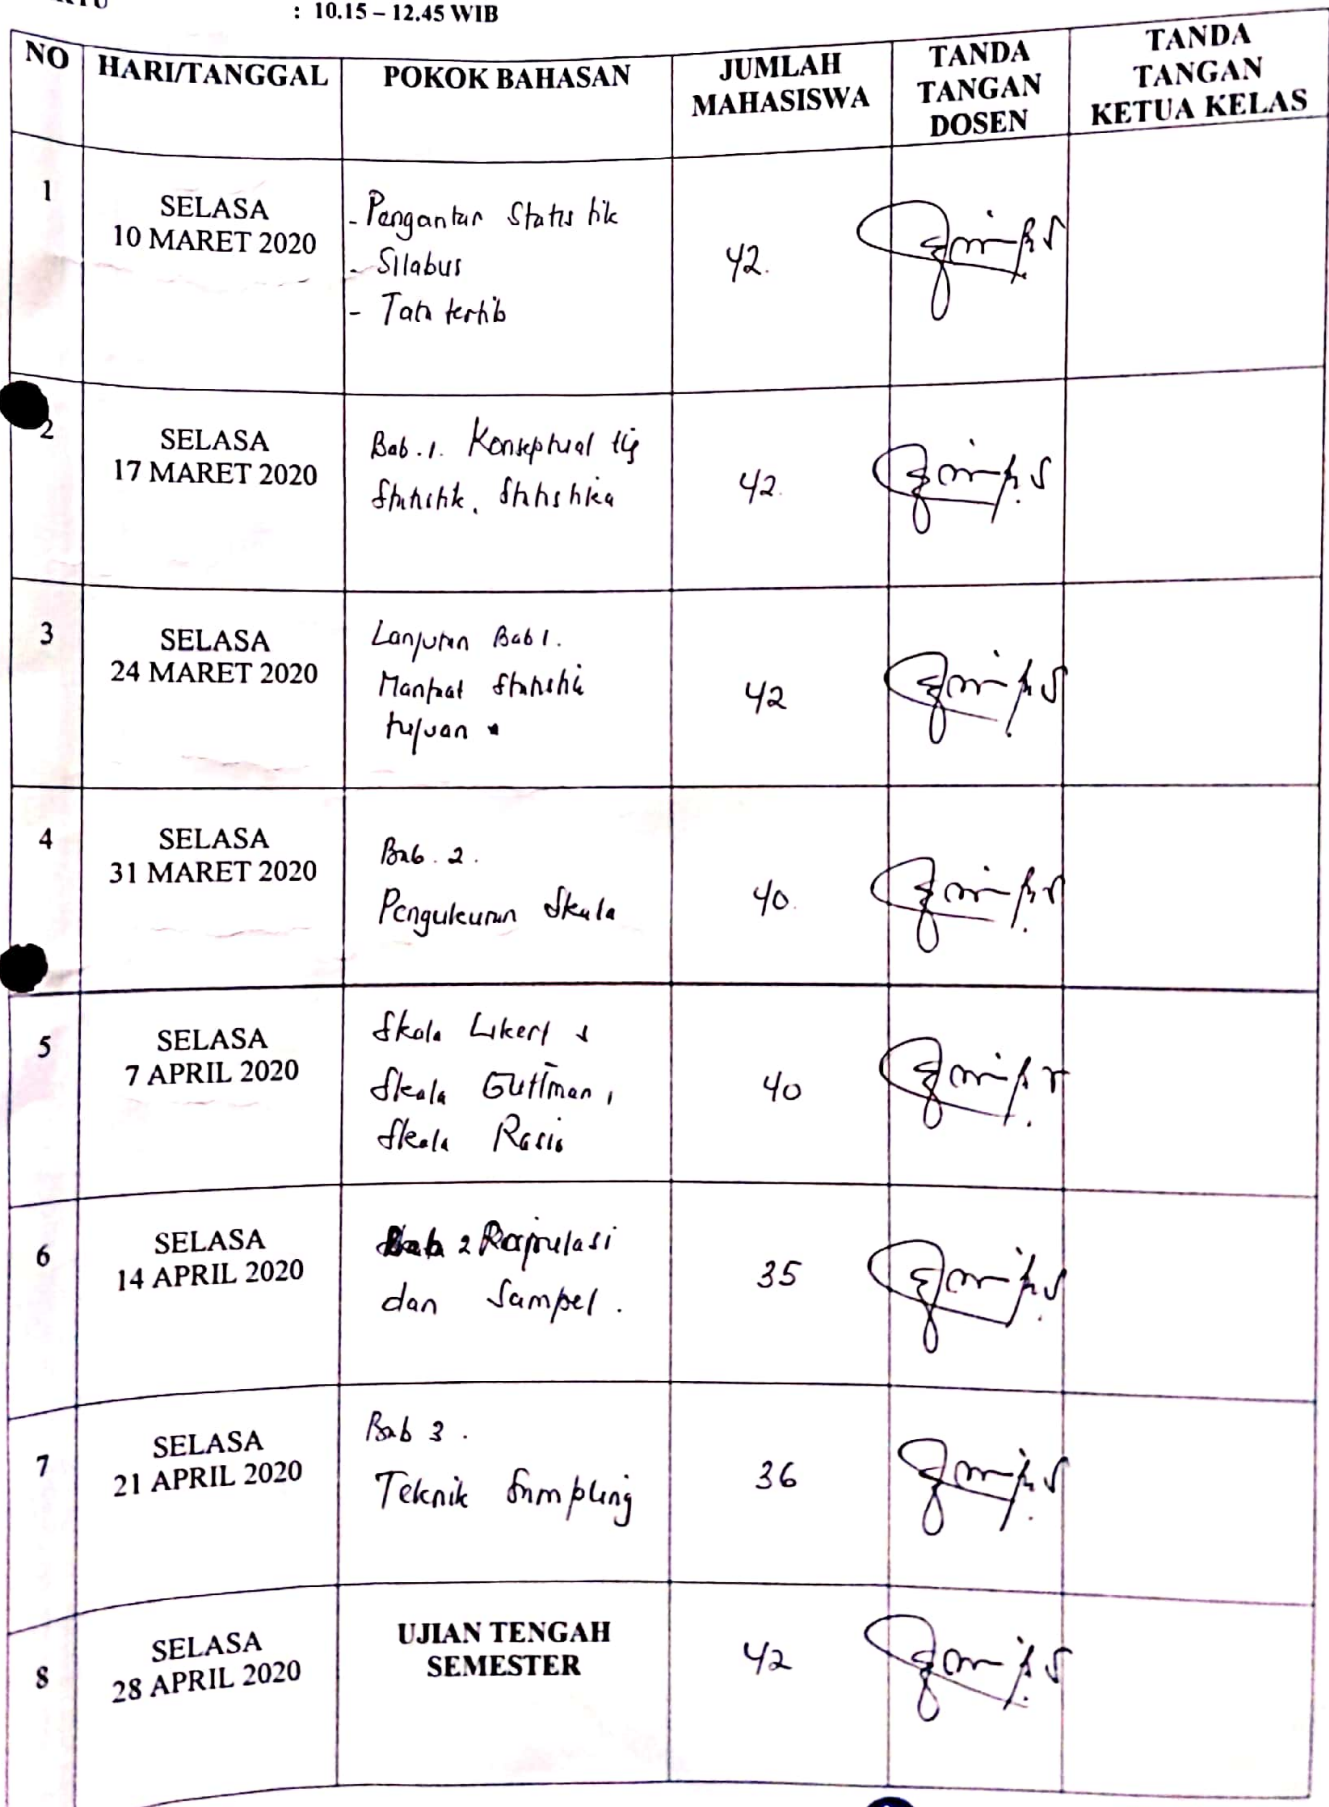 : 10.15 – 12.45 WIB
NO
HARI/TANGGAL
POKOK BAHASAN
JUMLAH
MAHASISWA
TANDA
TANGAN
DOSEN
TANDA
TANGAN
KETUA KELAS
1
SELASA
10 MARET 2020
- Pengantar Statistik
- Silabus
- Tata tertib
42.
2
SELASA
17 MARET 2020
Bab. 1. Konseptual ttg
Statistik, Statistika
42.
3
SELASA
24 MARET 2020
Lanjutan Bab 1.
Manfaat
tujuan
42
4
SELASA
31 MARET 2020
Bab. 2.
Pengukuran Skala
40.
5
SELASA
7 APRIL 2020
Skala Likert
Skala Guttman,
Skala Rasio
40
6
SELASA
14 APRIL 2020
Bab 2 Populasi
dan Sampel.
35
7
SELASA
21 APRIL 2020
Bab 3.
Teknik Sampling
36
8
SELASA
28 APRIL 2020
UJIAN TENGAH
SEMESTER
42